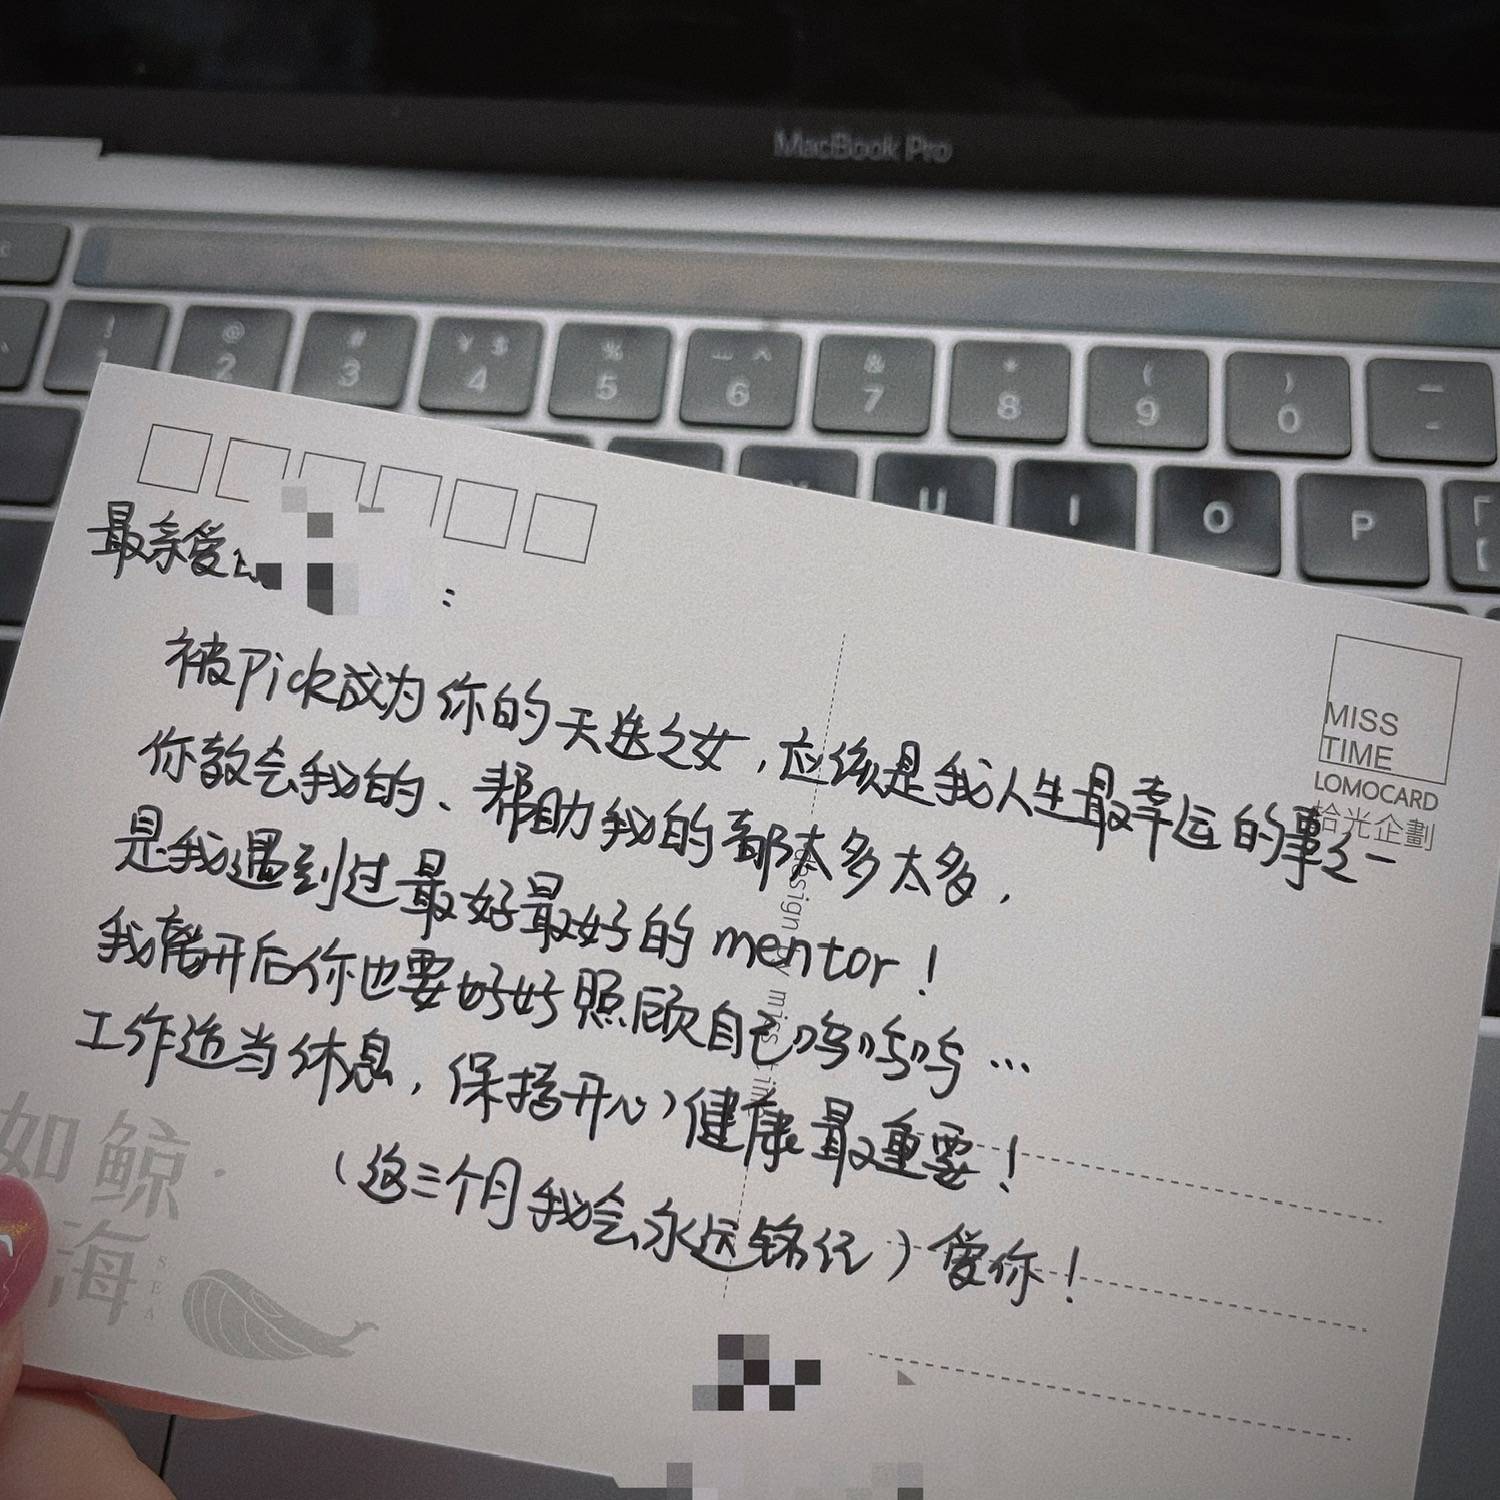 MacBook Pro
! @ # ¥ $ % ^ & * ( ) —
2 3 4 5 6 7 8 9 0 -
U I O P
最亲爱的
:
被Pick成为你的天选之女,应该是我人生最幸运的事之一
你教会我的、帮助我的都太多太多,
是我遇到过最好最好的mentor!
我离开后你也要好好照顾自己呜呜呜…
工作适当休息,保持开心,健康最重要!
(这三个月我会永远铭记)爱你!
MISS
TIME
LOMOCARD
拾光企劃
design by miss time
如鲸·
海
SEA